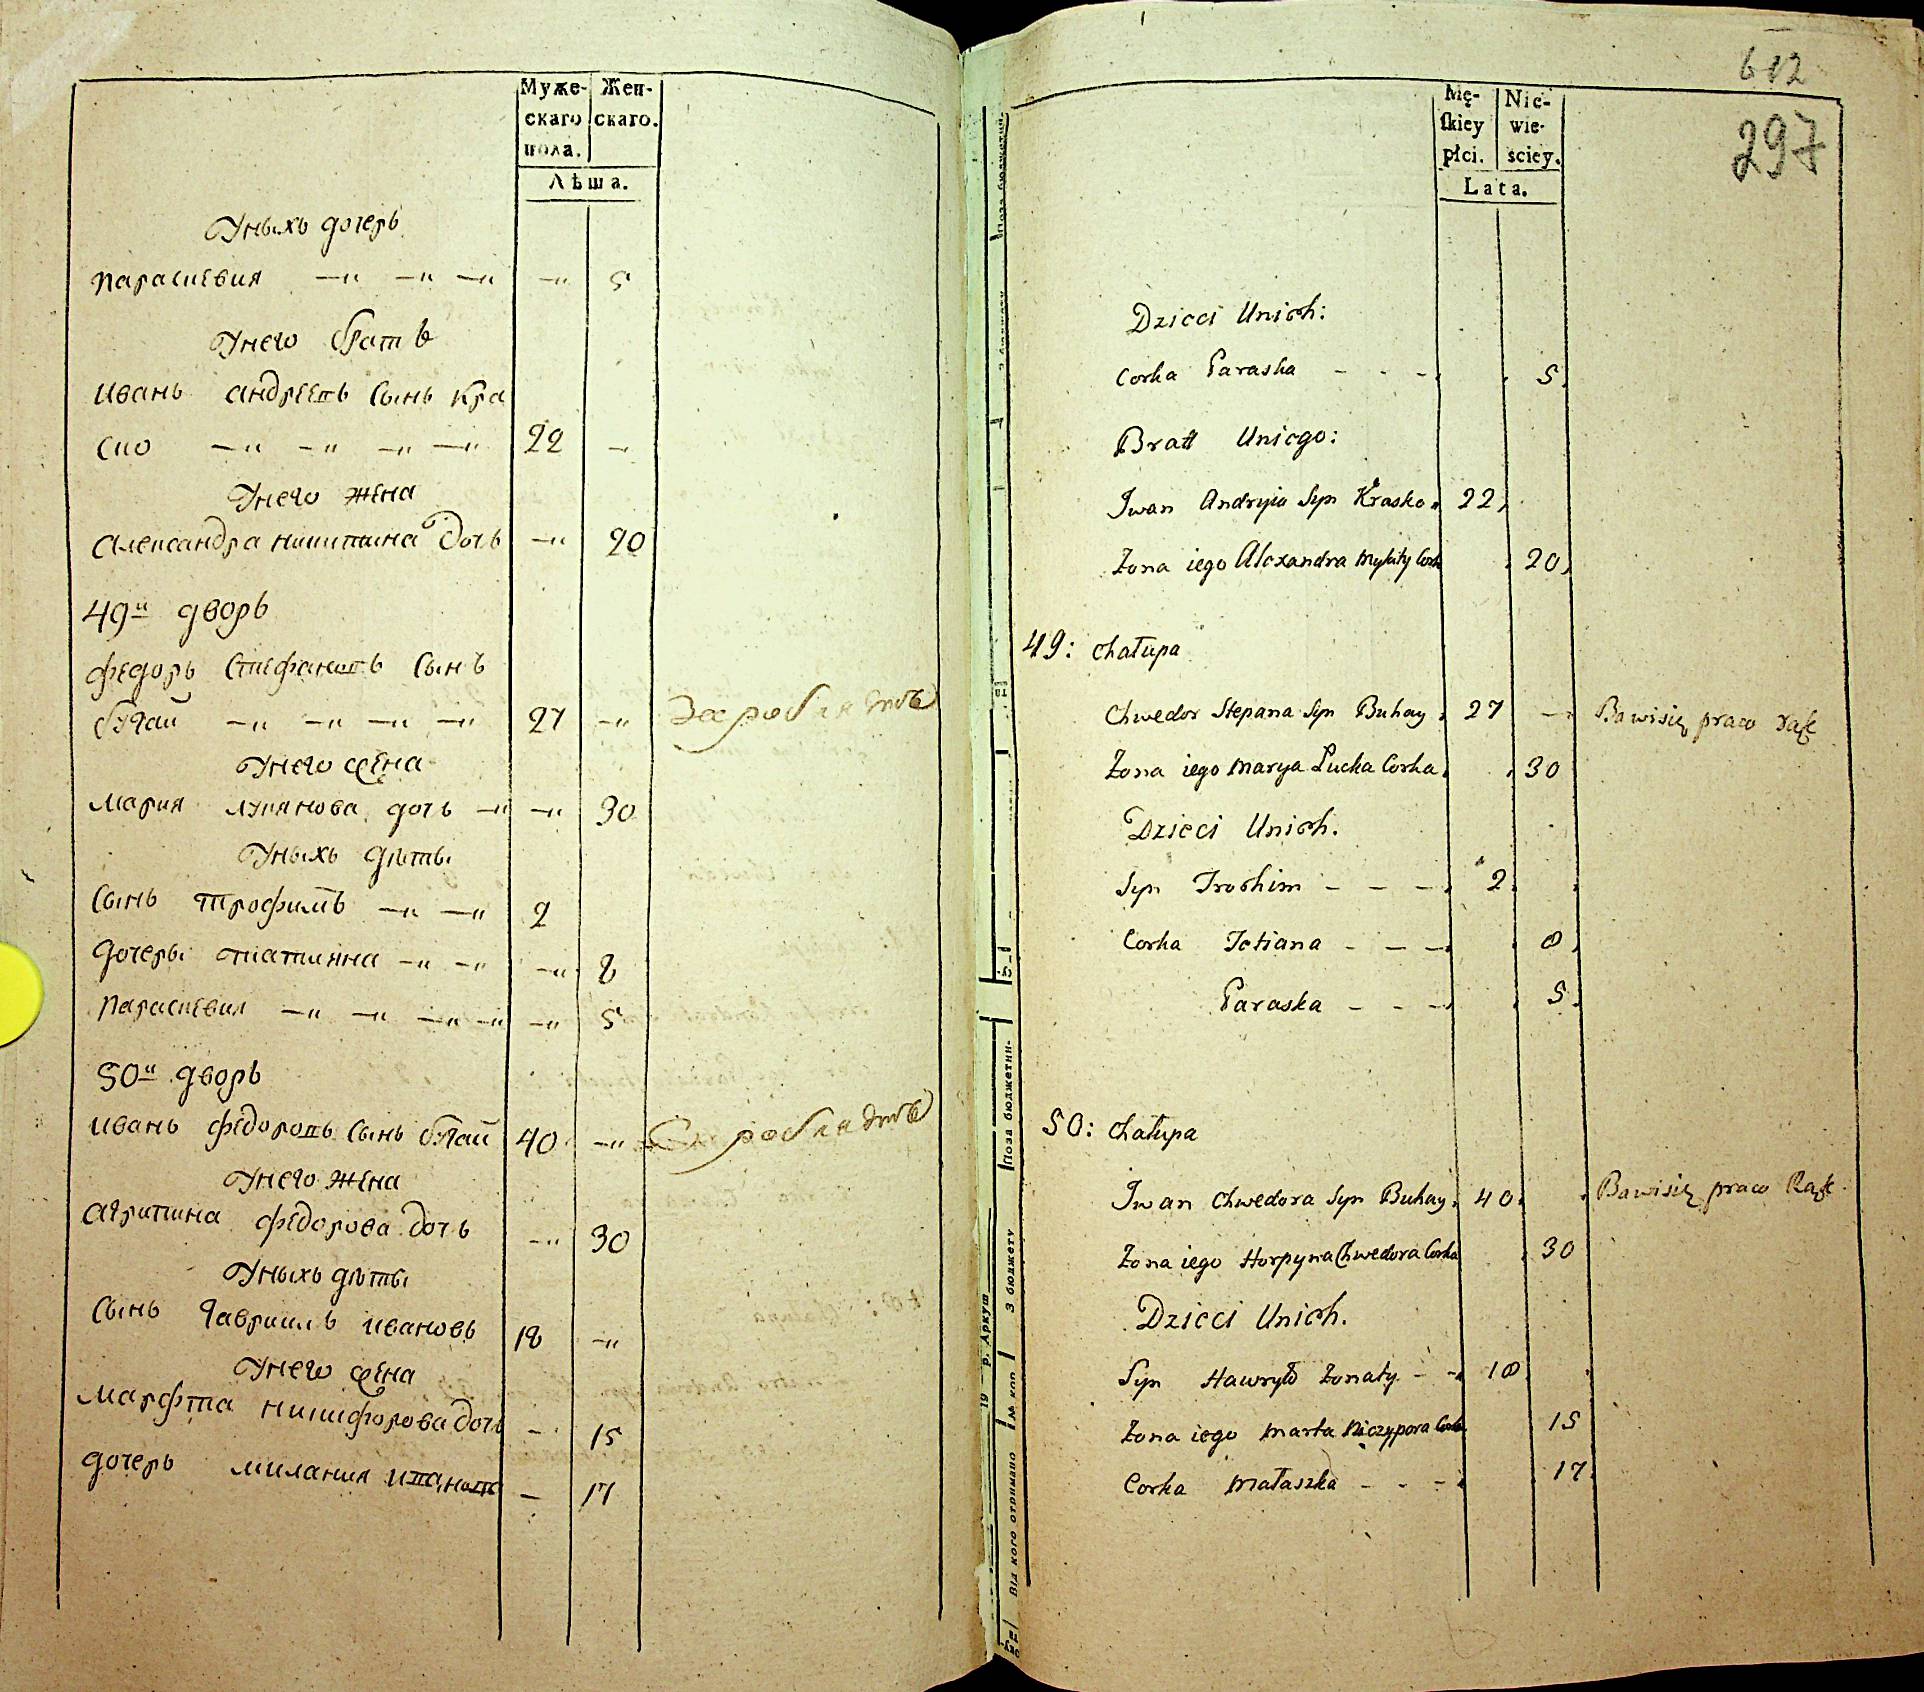 Муже-
скаго
пола.
Жен-
скаго.
Лѣта.
Уныхъ дочерь
параскевия —„ —„ —„ —„ 5
Унего братъ
иванъ андреевъ сынъ кра
ско —„ —„ —„ —„ 22 —„
Унего жена
александра никитина дочь —„ 20
49й дворъ
федоръ стефановъ сынъ
бугай —„ —„ —„ —„ 27 —„
Унего жена
мария лукянова дочь —„ —„ 30
Уныхъ дѣти
сынъ трофимъ —„ —„ 2
дочери татияна —„ —„ —„ 8
параскевия —„ —„ —„ —„ —„ 5
50й дворъ
иванъ федоровъ сынъ бугай 40 —„
Унего жена
агрипина федорова дочь —„ 30
Уныхъ дѣти
сынъ гавриилъ ивановъ 18 —„
Унего жена
марфта никифорова дочь — 15
дочерь милания — 17
612
297
Mę-
skiey
płci.
Nie-
wie-
sciey.
Lata.
Dzieci Unich:
Corka Paraska - - - 5
Bratt Uniego:
Jwan Andryia Syn Krasko 22
Zona iego Alexandra Mykity Cork 20
49: chałupa
Chwedor Stepana Syn Buhay 27 — Bawisię praco
Zona iego Marya Łucka Corka 30
Dzieci Unich.
Syn Trochim - - - 2
Corka Tetiana - - - 8
Paraska - - - 5
50: chałupa
Jwan Chwedora Syn Buhay 40 Bawisię praco
Zona iego Horpyna Chwedora Corka 30
Dzieci Unich.
Syn Hawryło Zonaty - - 18
Zona iego Marta Niczypora Corka 15
Corka Małaszka - - - 17
Поза бюджетни-
З бюджету
19 р. Аркуш
№ кор
Від кого отримано